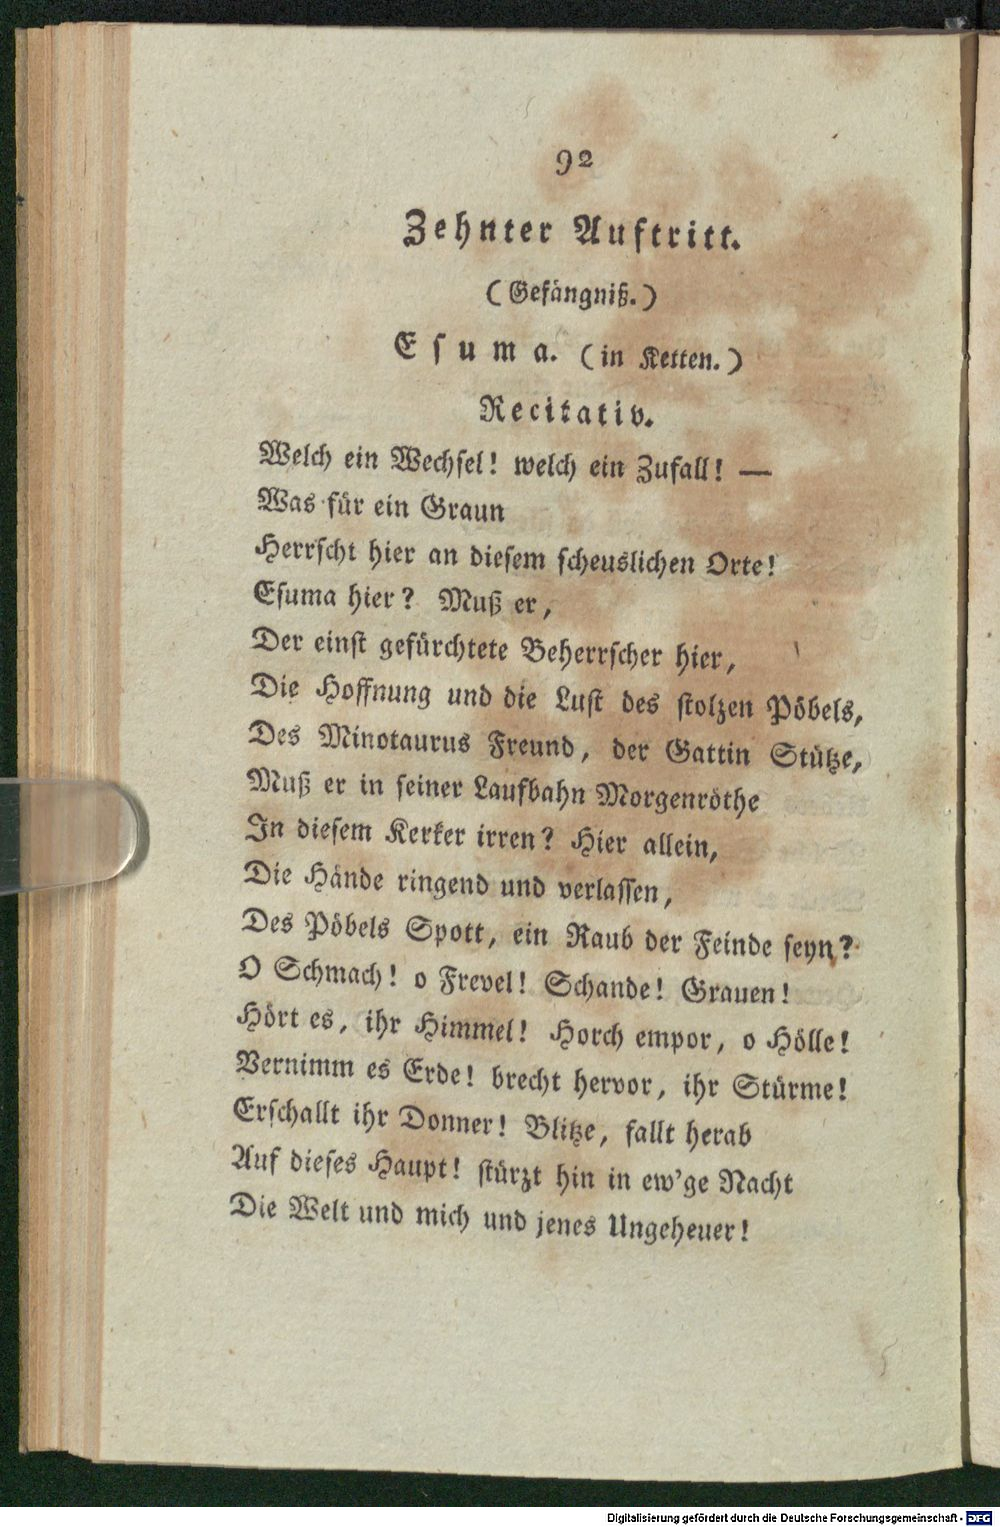 92
Zehnter Auftritt.
(Gefängniß.)
Esuma. (in Ketten.)
Recitativ.
Welch ein Wechsel! welch ein Zufall! —
Was für ein Graun
Herrscht hier an diesem scheuslichen Orte!
Esuma hier? Muß er,
Der einst gefürchtete Beherrscher hier,
Die Hoffnung und die Lust des stolzen Pöbels,
Des Minotaurus Freund, der Gattin Stütze,
Muß er in seiner Laufbahn Morgenröthe
In diesem Kerker irren? Hier allein,
Die Hände ringend und verlassen,
Des Pöbels Spott, ein Raub der Feinde seyn?
O Schmach! o Frevel! Schande! Grauen!
Hört es, ihr Himmel! Horch empor, o Hölle!
Vernimm es Erde! brecht hervor, ihr Stürme!
Erschallt ihr Donner! Blitze, fallt herab
Auf dieses Haupt! stürzt hin in ew'ge Nacht
Die Welt und mich und jenes Ungeheuer!
Digitalisierung gefördert durch die Deutsche Forschungsgemeinschaft - DFG